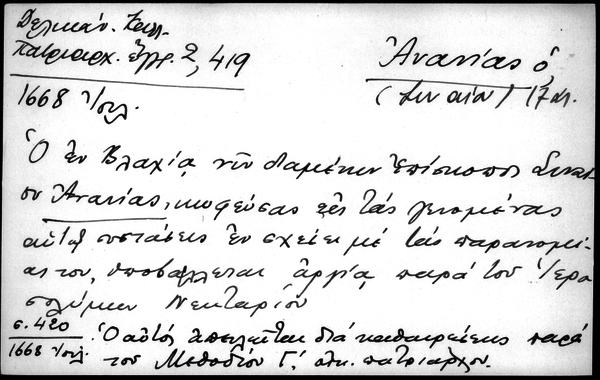 Δελικάν. Καλλ.
Πατριαρχ. Ἔγγρ. 2, 419
1668 Ἰουλ.
Ἀνανίας ὁ,
(Σιναίου) 17 αι.
Ὁ ἐν Βλαχίᾳ νῦν διαμένων ἐπίσκοπος Σιναί-
ου Ἀνανίας, κωφεύσας εἰς τάς γενομένας
αὐτῷ συστάσεις ἐν σχέσει μέ τάς παρανομί-
ας του, ὑποβάλλεται ἀργίᾳ παρά τοῦ Ἱερο
σολύμων Νεκταρίου
σ. 420
1668 Ἰουλ.
Ὁ αὐτός ἀπειλεῖται διά καθαιρέσεως παρά
τοῦ Μεθοδίου Γ΄. οἰκ. πατριάρχου.